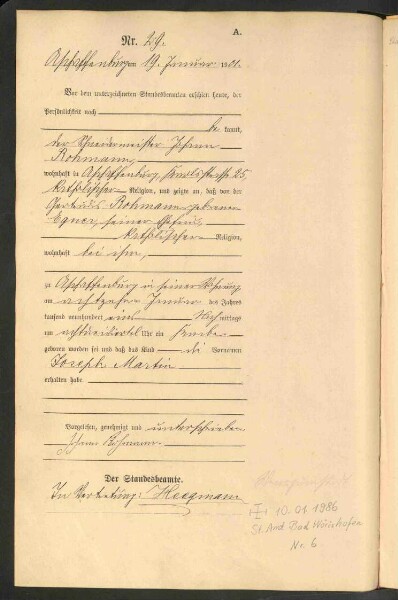 A.
Nr. 29.
Aschaffenburg am 19. Januar 1901.
Vor dem unterzeichneten Standesbeamten erschien heute, der
Persönlichkeit nach
be kannt,
der Schreinermeister Johann
Rohmann,
wohnhaft in Aschaffenburg, 25,
katholischer Religion, und zeigte an, daß von der
Gertraud Rohmann geborene
seiner Ehefrau,
katholischer Religion,
wohnhaft bei ihm,
zu Aschaffenburg in seiner Wohnung
am achtzehnten Januar des Jahres
tausend neunhundert eins Nachmittags
um Uhr ein Knabe
geboren worden sei und daß das Kind die Vornamen
Joseph Martin
erhalten habe
Vorgelesen, genehmigt und unterschrieben
Johann Rohmann.
Der Standesbeamte.
In Vertretung:
10.01.1986
St. Amt Bad Wörishofen
Nr. 6